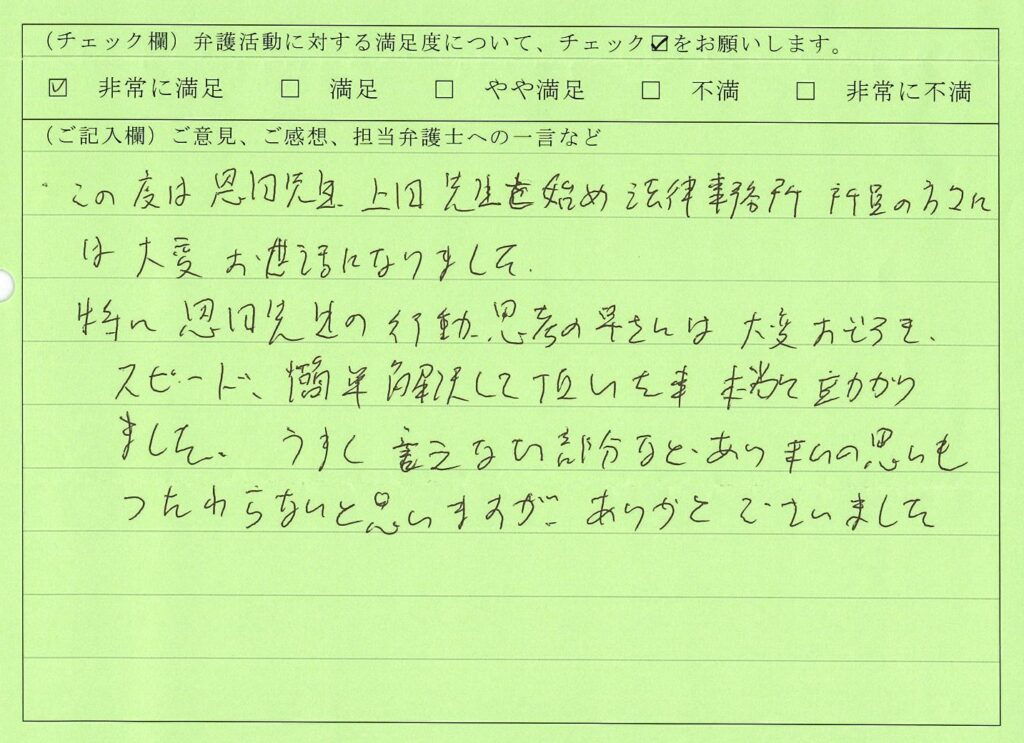 (チェック欄)弁護活動に対する満足度について、チェック☑をお願いします。
☑ 非常に満足 □ 満足 □ やや満足 □ 不満 □ 非常に不満
(ご記入欄)ご意見、ご感想、担当弁護士への一言など
この度は 恩田先生 上田 先生を始め 法律事務所 所員の方々に
は 大変 お世話になりました.
特に 恩田先生の 行動、思考の早さには 大変 おどろき、
スピード、簡単 解決して頂いた事 本当に助かり
ました。 うまく 言えない部分など、あり 私の思いも
つたわらないと思いますが、ありがとうございました